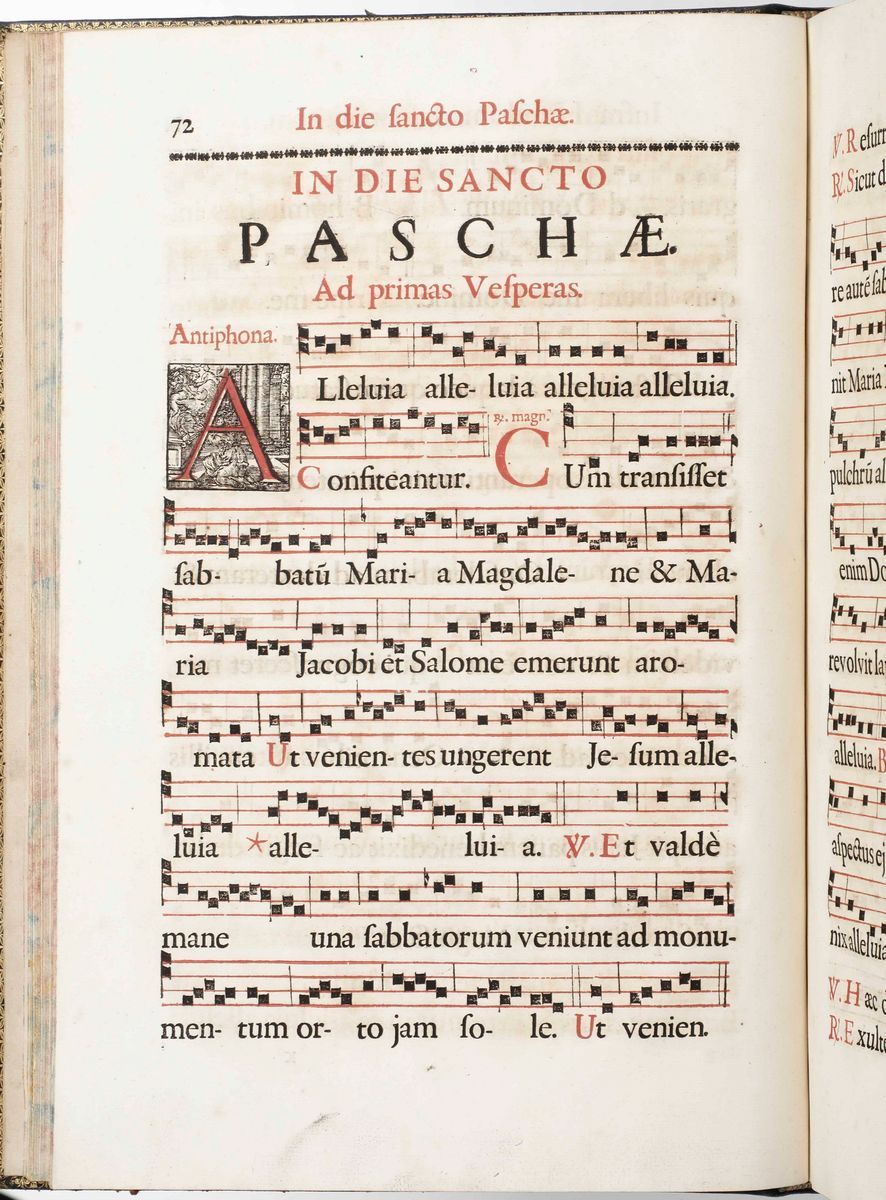 72 In die ſancto Paſchæ.
IN DIE SANCTO
PASCHÆ.
Ad primas Veſperas.
Antiphona.
ALleluia alle- luia alleluia alleluia.
℟. magn.
Confiteantur. CUm tranſiſſet
ſab- batū Mari- a Magdale- ne & Ma-
ria Jacobi et Salome emerunt aro-
mata Ut venien- tes ungerent Je- ſum alle-
luia *alle- lui- a. ℣. Et valdè
mane una ſabbatorum veniunt ad monu-
men- tum or- to jam ſo- le. Ut venien.
℣. Reſurr
℟. Sicut d
re autē ſab
nit Maria
pulchrū al
enim Do
revolvit la
alleluia.
aſpectus ej
nix alleluia
℣. Hæc d
℟. Exulte